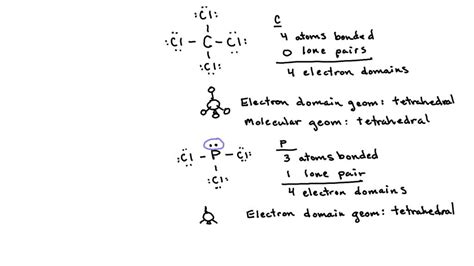 :Cl:
:Cl – C – Cl:
:Cl:
C
4 atoms bonded
0 lone pairs
4 electron domains
Electron domain geom: tetrahedral
Molecular geom: tetrahedral
:Cl – P – Cl:
:Cl:
P
3 atoms bonded
1 lone pair
4 electron domains
Electron domain geom: tetrahedral